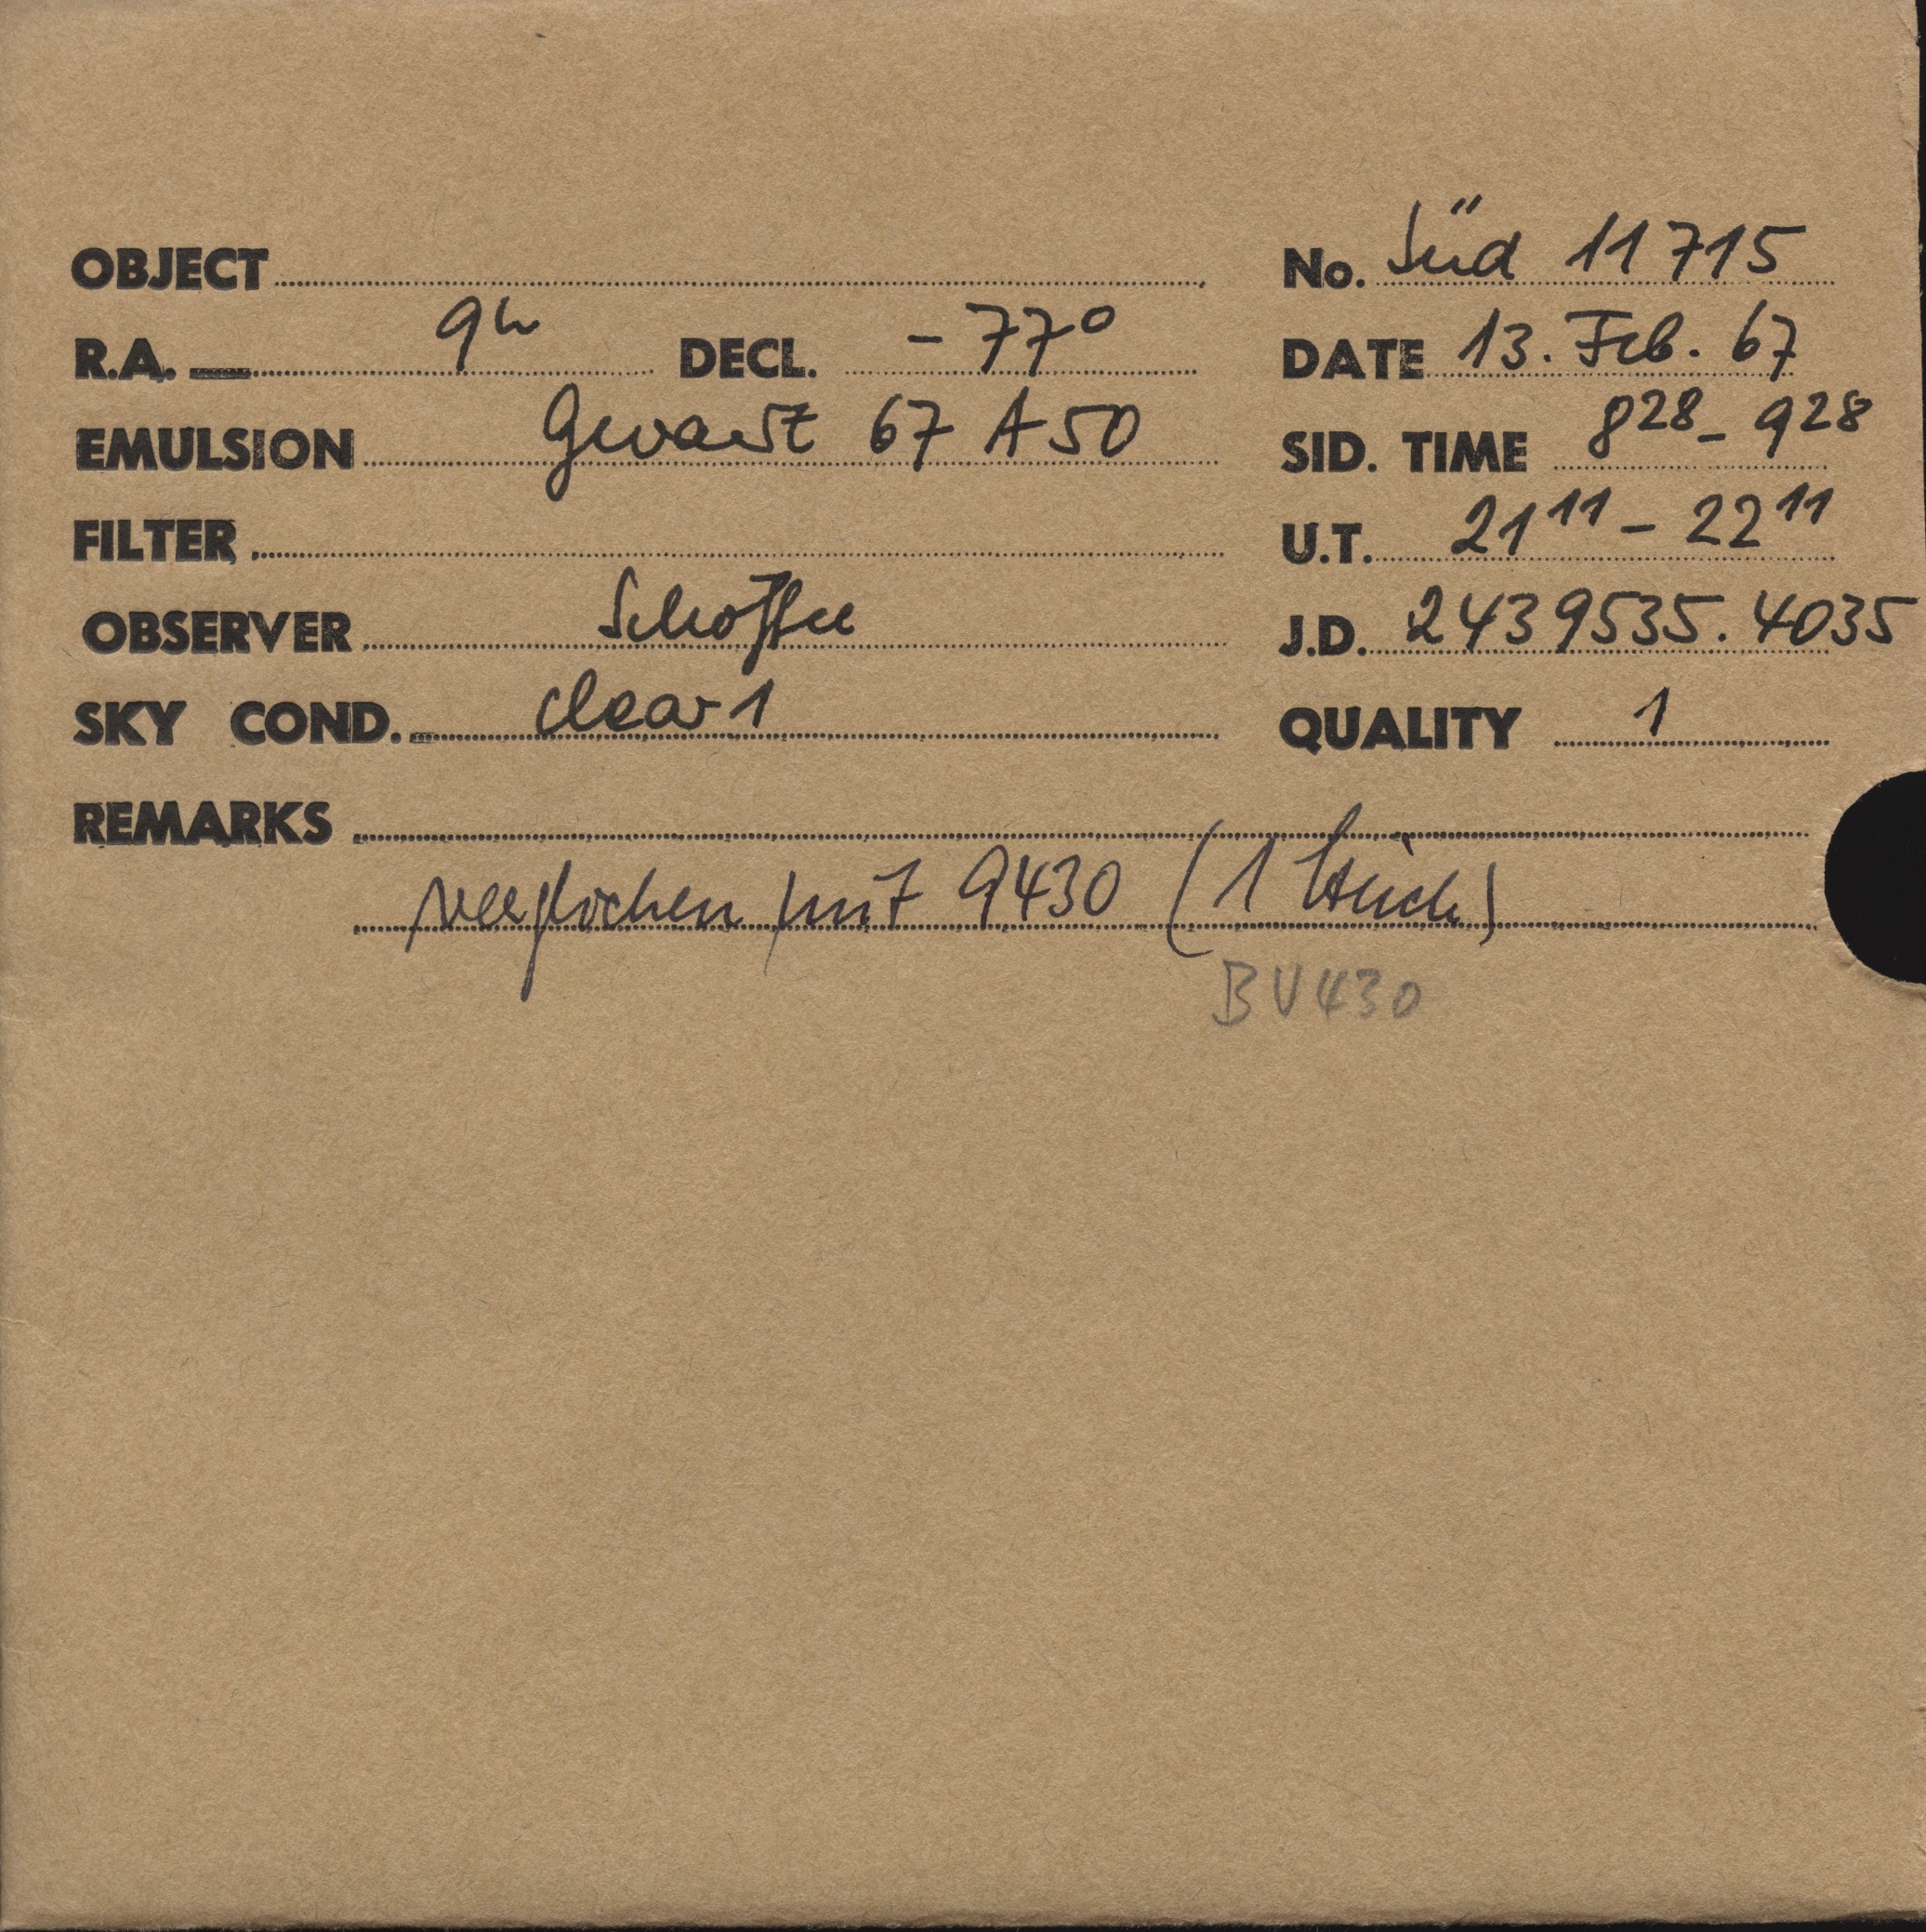 OBJECT
No. Süd 11715
R.A. 9h DECL. -77°
DATE 13. Feb. 67
EMULSION Gevaert 67 A 50
SID. TIME 8 28 - 9 28
FILTER
U.T. 21 11 - 22 11
OBSERVER Schöffel
J.D. 2439535.4035
SKY COND. clear 1
QUALITY 1
REMARKS
verglichen mit 9430 (1 Stück)
BV430